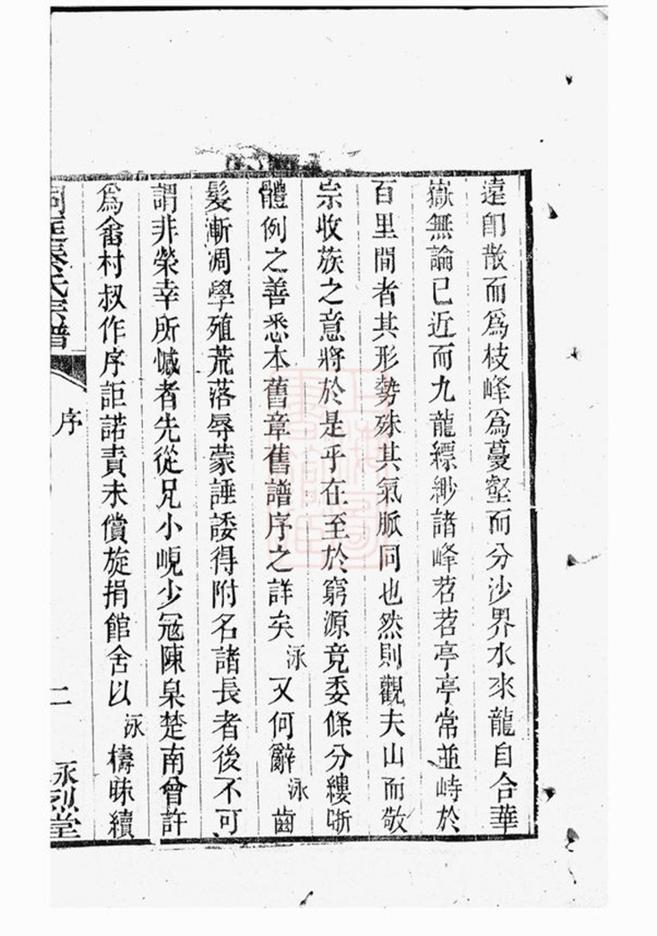 遠卽散而爲枝峰爲蔓壑而分沙界水來龍自合華
嶽無論已近而九龍縹緲諸峰苕苕亭亭常並峙於
百里間者其形勢殊其氣脈同也然則觀夫山而敬
宗收族之意將於是乎在至於窮源竟委條分縷晰
體例之善悉本舊章舊譜序之詳矣泳又何辭泳齒
髮漸凋學殖荒落辱蒙諈諉得附名諸長者後不可
謂非榮幸所憾者先從兄小峴少冦陳臬楚南曾許
爲畬村叔作序詎諾責未償旋捐館舍以泳檮昧續
洞庭秦氏宗譜
序
二
詠烈堂